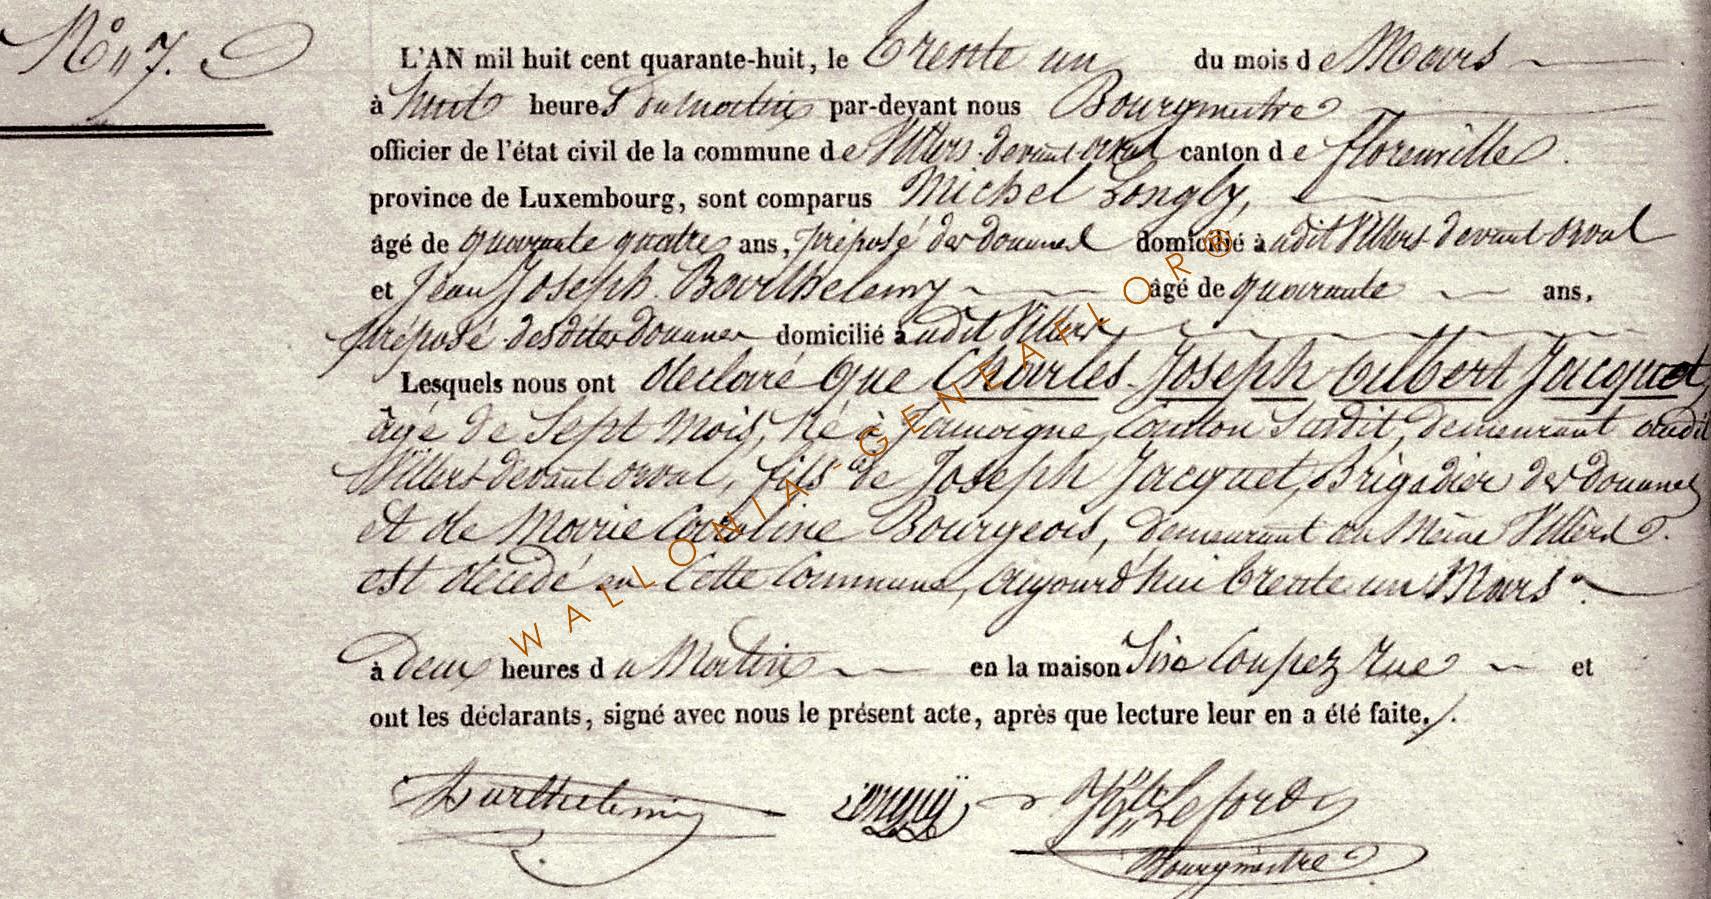 N° 7.
L'AN mil huit cent quarante-huit, le trente un du mois de Mars
à huit heures du matin par-devant nous Bourgmestre
officier de l'état civil de la commune de Villers devant orval canton de florenville.
province de Luxembourg, sont comparus Michel Longly,
âgé de quarante quatre ans, préposé des douanes domicilié à audit Villers devant orval
et Jean Joseph Barthelemy âgé de quarante ans,
préposé desdites douanes domicilié à audit Villers
Lesquels nous ont déclaré que Charles Joseph albert Jacquet,
âgé de Sept Mois, Né à Jamoigne, Canton Susdit, demeurant audit
Villers devant orval, fils de Joseph Jacquet, Brigadier des douanes
et de Marie Caroline Bourgeois, demeurant au Même Villers.
est décédé en Cette Commune, aujourd'hui trente un Mars
à deux heures du Matin en la maison Sise Coupez rue et
ont les déclarants, signé avec nous le présent acte, après que lecture leur en a été faite.
Barthelemy Lefort
Bourgmestre
WALLONIA-GENEAFLOR®